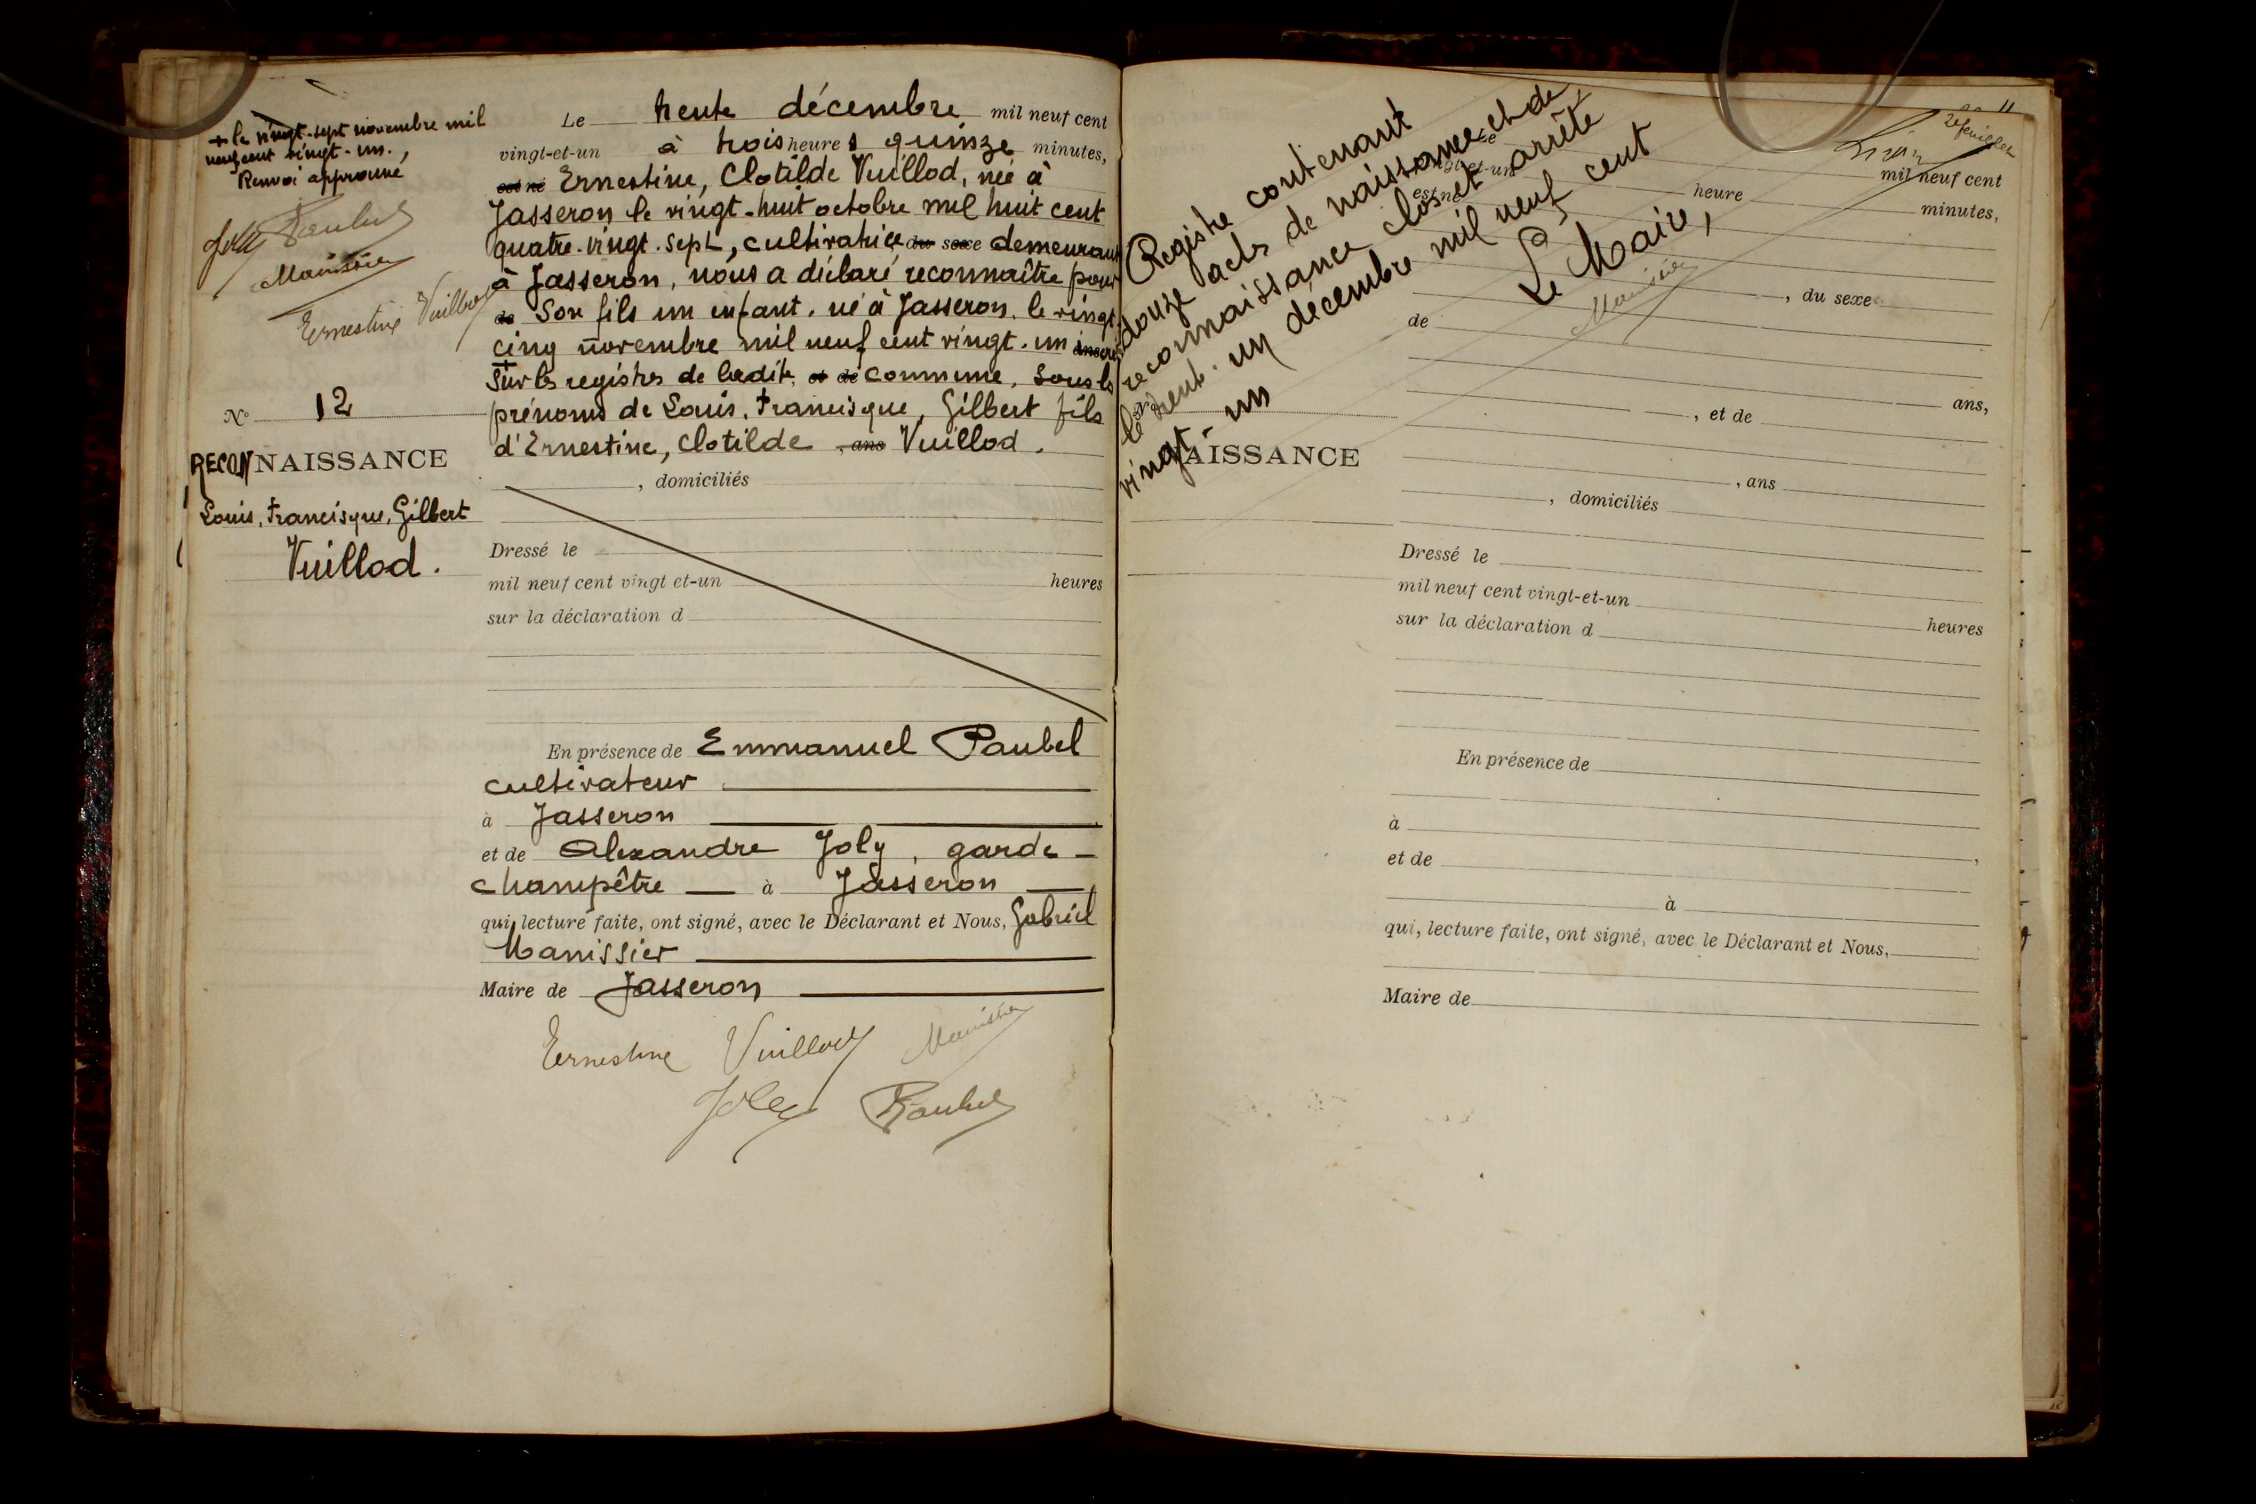 + le vingt-sept novembre mil
neuf cent vingt-un.,
Renvoi approuvé
Joly Paubel
Manissier
Ernestine Vuillod
N° 12
RECONNAISSANCE
Louis, Francisque, Gilbert
Vuillod.
Le trente décembre mil neuf cent
vingt-et-un à trois heures quinze minutes,
est né Ernestine, Clotilde Vuillod, née à
Jasseron le vingt-huit octobre mil huit cent
quatre-vingt-sept, cultivatrice du sexe demeurant
à Jasseron, nous a déclaré reconnaître pour
de Son fils un enfant, né à Jasseron, le vingt
cinq novembre mil neuf cent vingt-un inscrit
+
sur les registres de ladite, et de commune, sous les
prénoms de Louis, Francisque, Gilbert fils
d'Ernestine, Clotilde , ans Vuillod.
, domiciliés
Dressé le
mil neuf cent vingt et-un heures
sur la déclaration d
En présence de Emmanuel Paubel
cultivateur
à Jasseron
et de Alexandre Joly, garde-
champêtre à Jasseron
qui, lecture faite, ont signé, avec le Déclarant et Nous, Gabriel
Manissier
Maire de Jasseron
Ernestine Vuillod Manissier
Joly Paubel
Registre contenant
douze actes de naissance et de
reconnaissance clos et arrêté
le trente-un décembre mil neuf cent
vingt-un
Le Maire,
Manissier
11
feuillet
mil neuf cent
vingt-et-un heure minutes,
est né
, du sexe
de
ans,
, et de
NAISSANCE
, ans
, domiciliés
Dressé le
mil neuf cent vingt-et-un heures
sur la déclaration d
En présence de
à ,
et de
à
qui, lecture faite, ont signé, avec le Déclarant et Nous,
Maire de